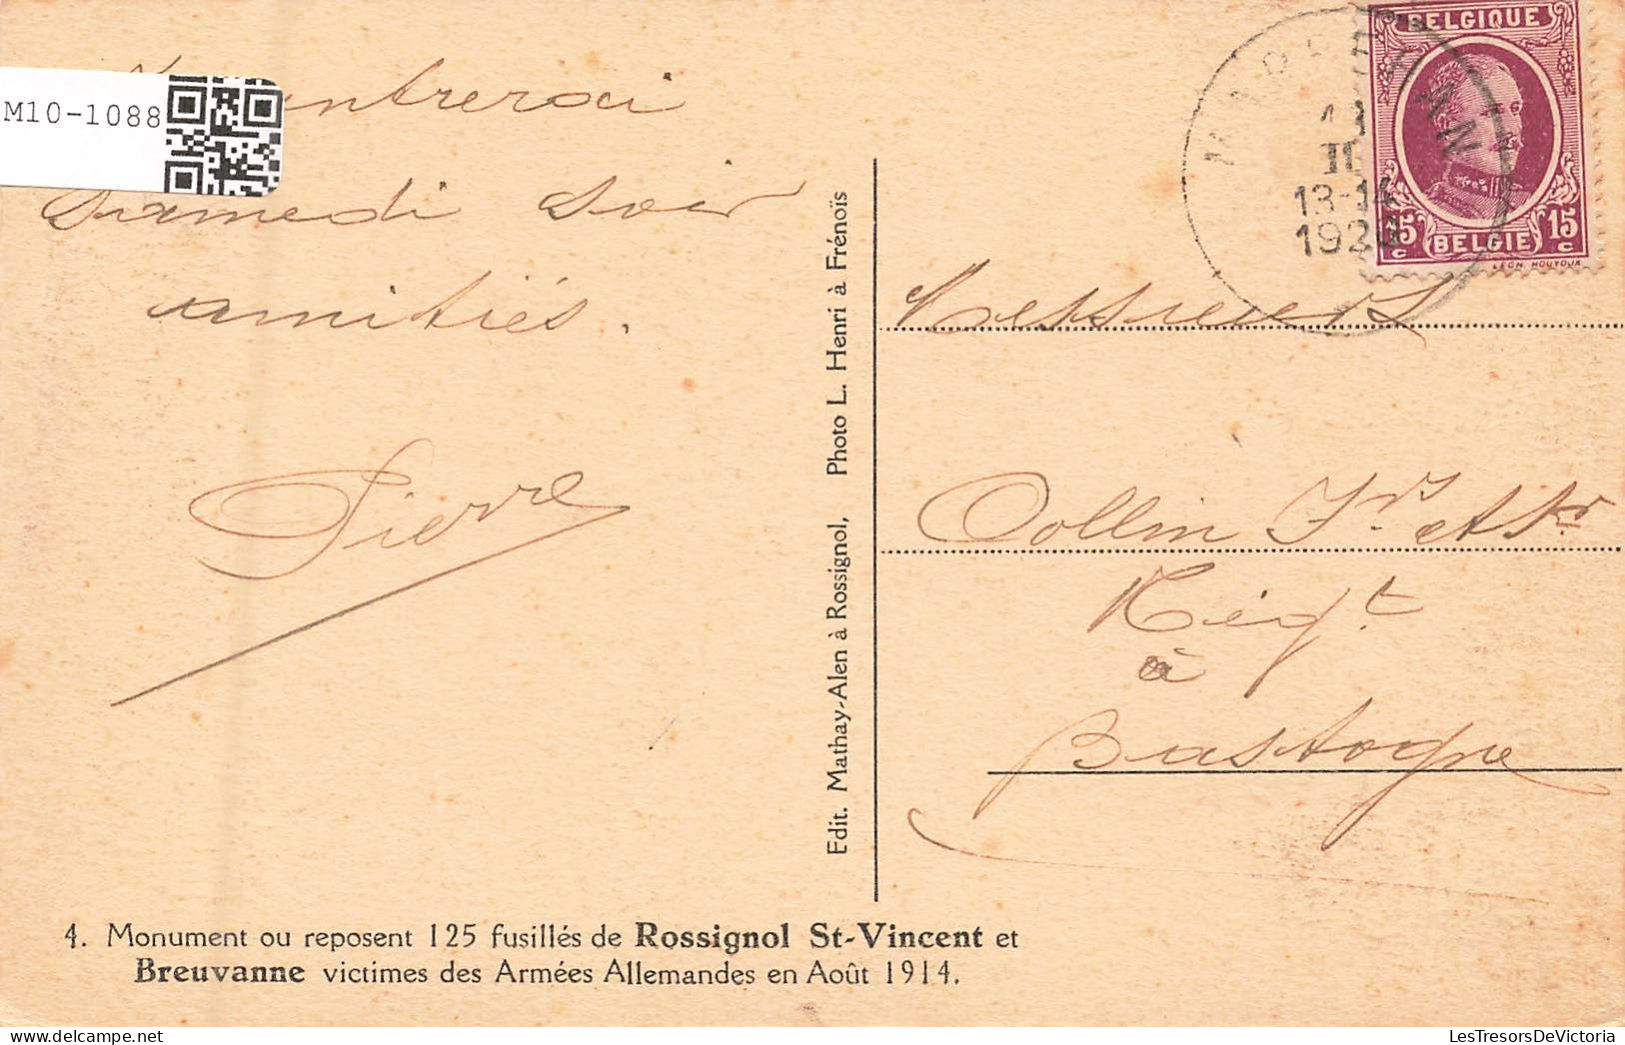 M10-1088
rentrerai
Samedi soir
amitiés.
Pierre
Edit. Mathay-Alen à Rossignol, Photo L. Henri à Frénois
BELGIQUE
15 BELGIE 15
c c
LEON HOUYOUX
13-14
Messieurs
Collin Frs et Sr
Negt
à
Bastogne
4. Monument ou reposent 125 fusillés de Rossignol St-Vincent et
Breuvanne victimes des Armées Allemandes en Août 1914.
LesTresorsDeVictoria